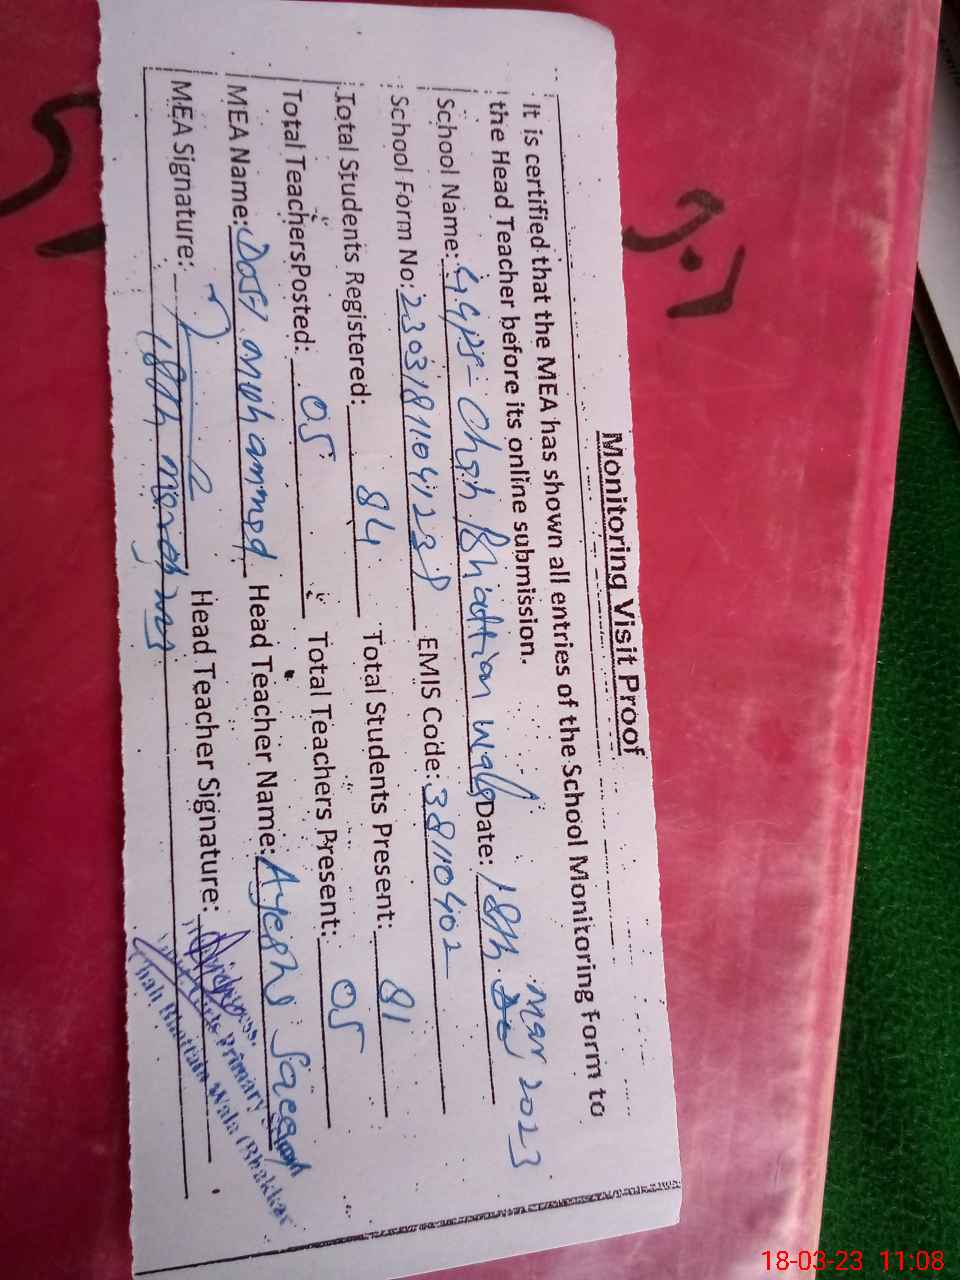 Monitoring Visit Proof
It is certified that the MEA has shown all entries of the School Monitoring Form to
the Head Teacher before its online submission.
School Name: GGPS- Chah Bhattian wala Date: 18th Mar 2023
School Form No: 230318110417238 EMIS Code: 38110402
Total Students Registered: 84 Total Students Present: 81
Total Teachers Posted: 05 Total Teachers Present: 05
MEA Name: Dost muhammad Head Teacher Name: Ayesha Saeed
MEA Signature: Head Teacher Signature:
18th march
Primary
Chah Bhattian Wala (Bhakkar
18-03-23 11:08